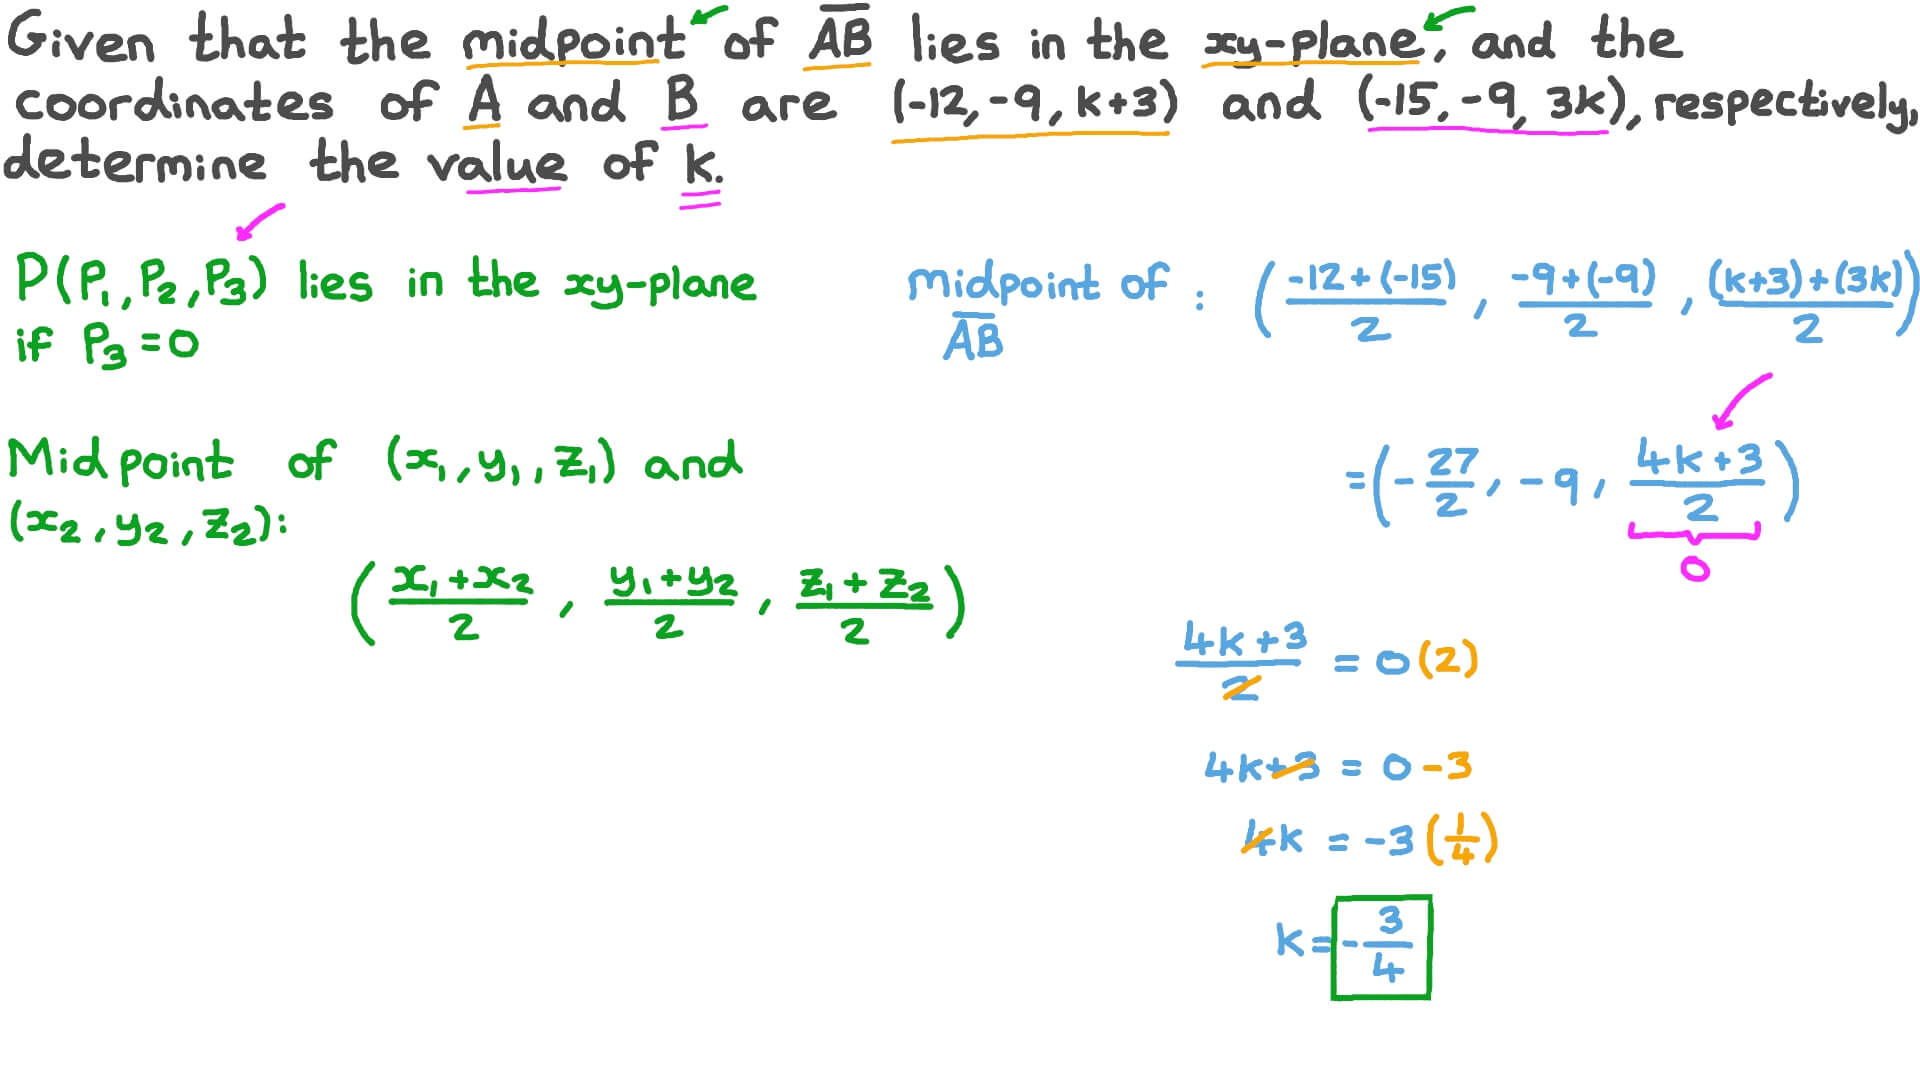 Given that the midpoint of A̅B̅ lies in the xy-plane, and the
coordinates of A and B are (-12, -9, k+3) and (-15, -9, 3k), respectively,
determine the value of k.
P(P₁, P₂, P₃) lies in the xy-plane
if P₃ = 0
Midpoint of (x₁, y₁, z₁) and
(x₂, y₂, z₂):
((x₁+x₂)/2, (y₁+y₂)/2, (z₁+z₂)/2)
midpoint of A̅B̅ : ((-12+(-15))/2, (-9+(-9))/2, ((k+3)+(3k))/2)
= (-27/2, -9, (4k+3)/2)
0
(4k+3)/2 = 0(2)
4k+3 = 0-3
4k = -3(1/4)
k = -3/4